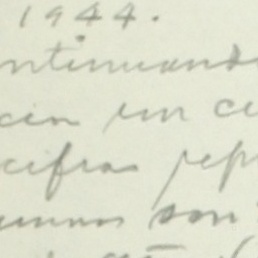 1944.
ntinuando
cia un ci
cifras rep
umnas son